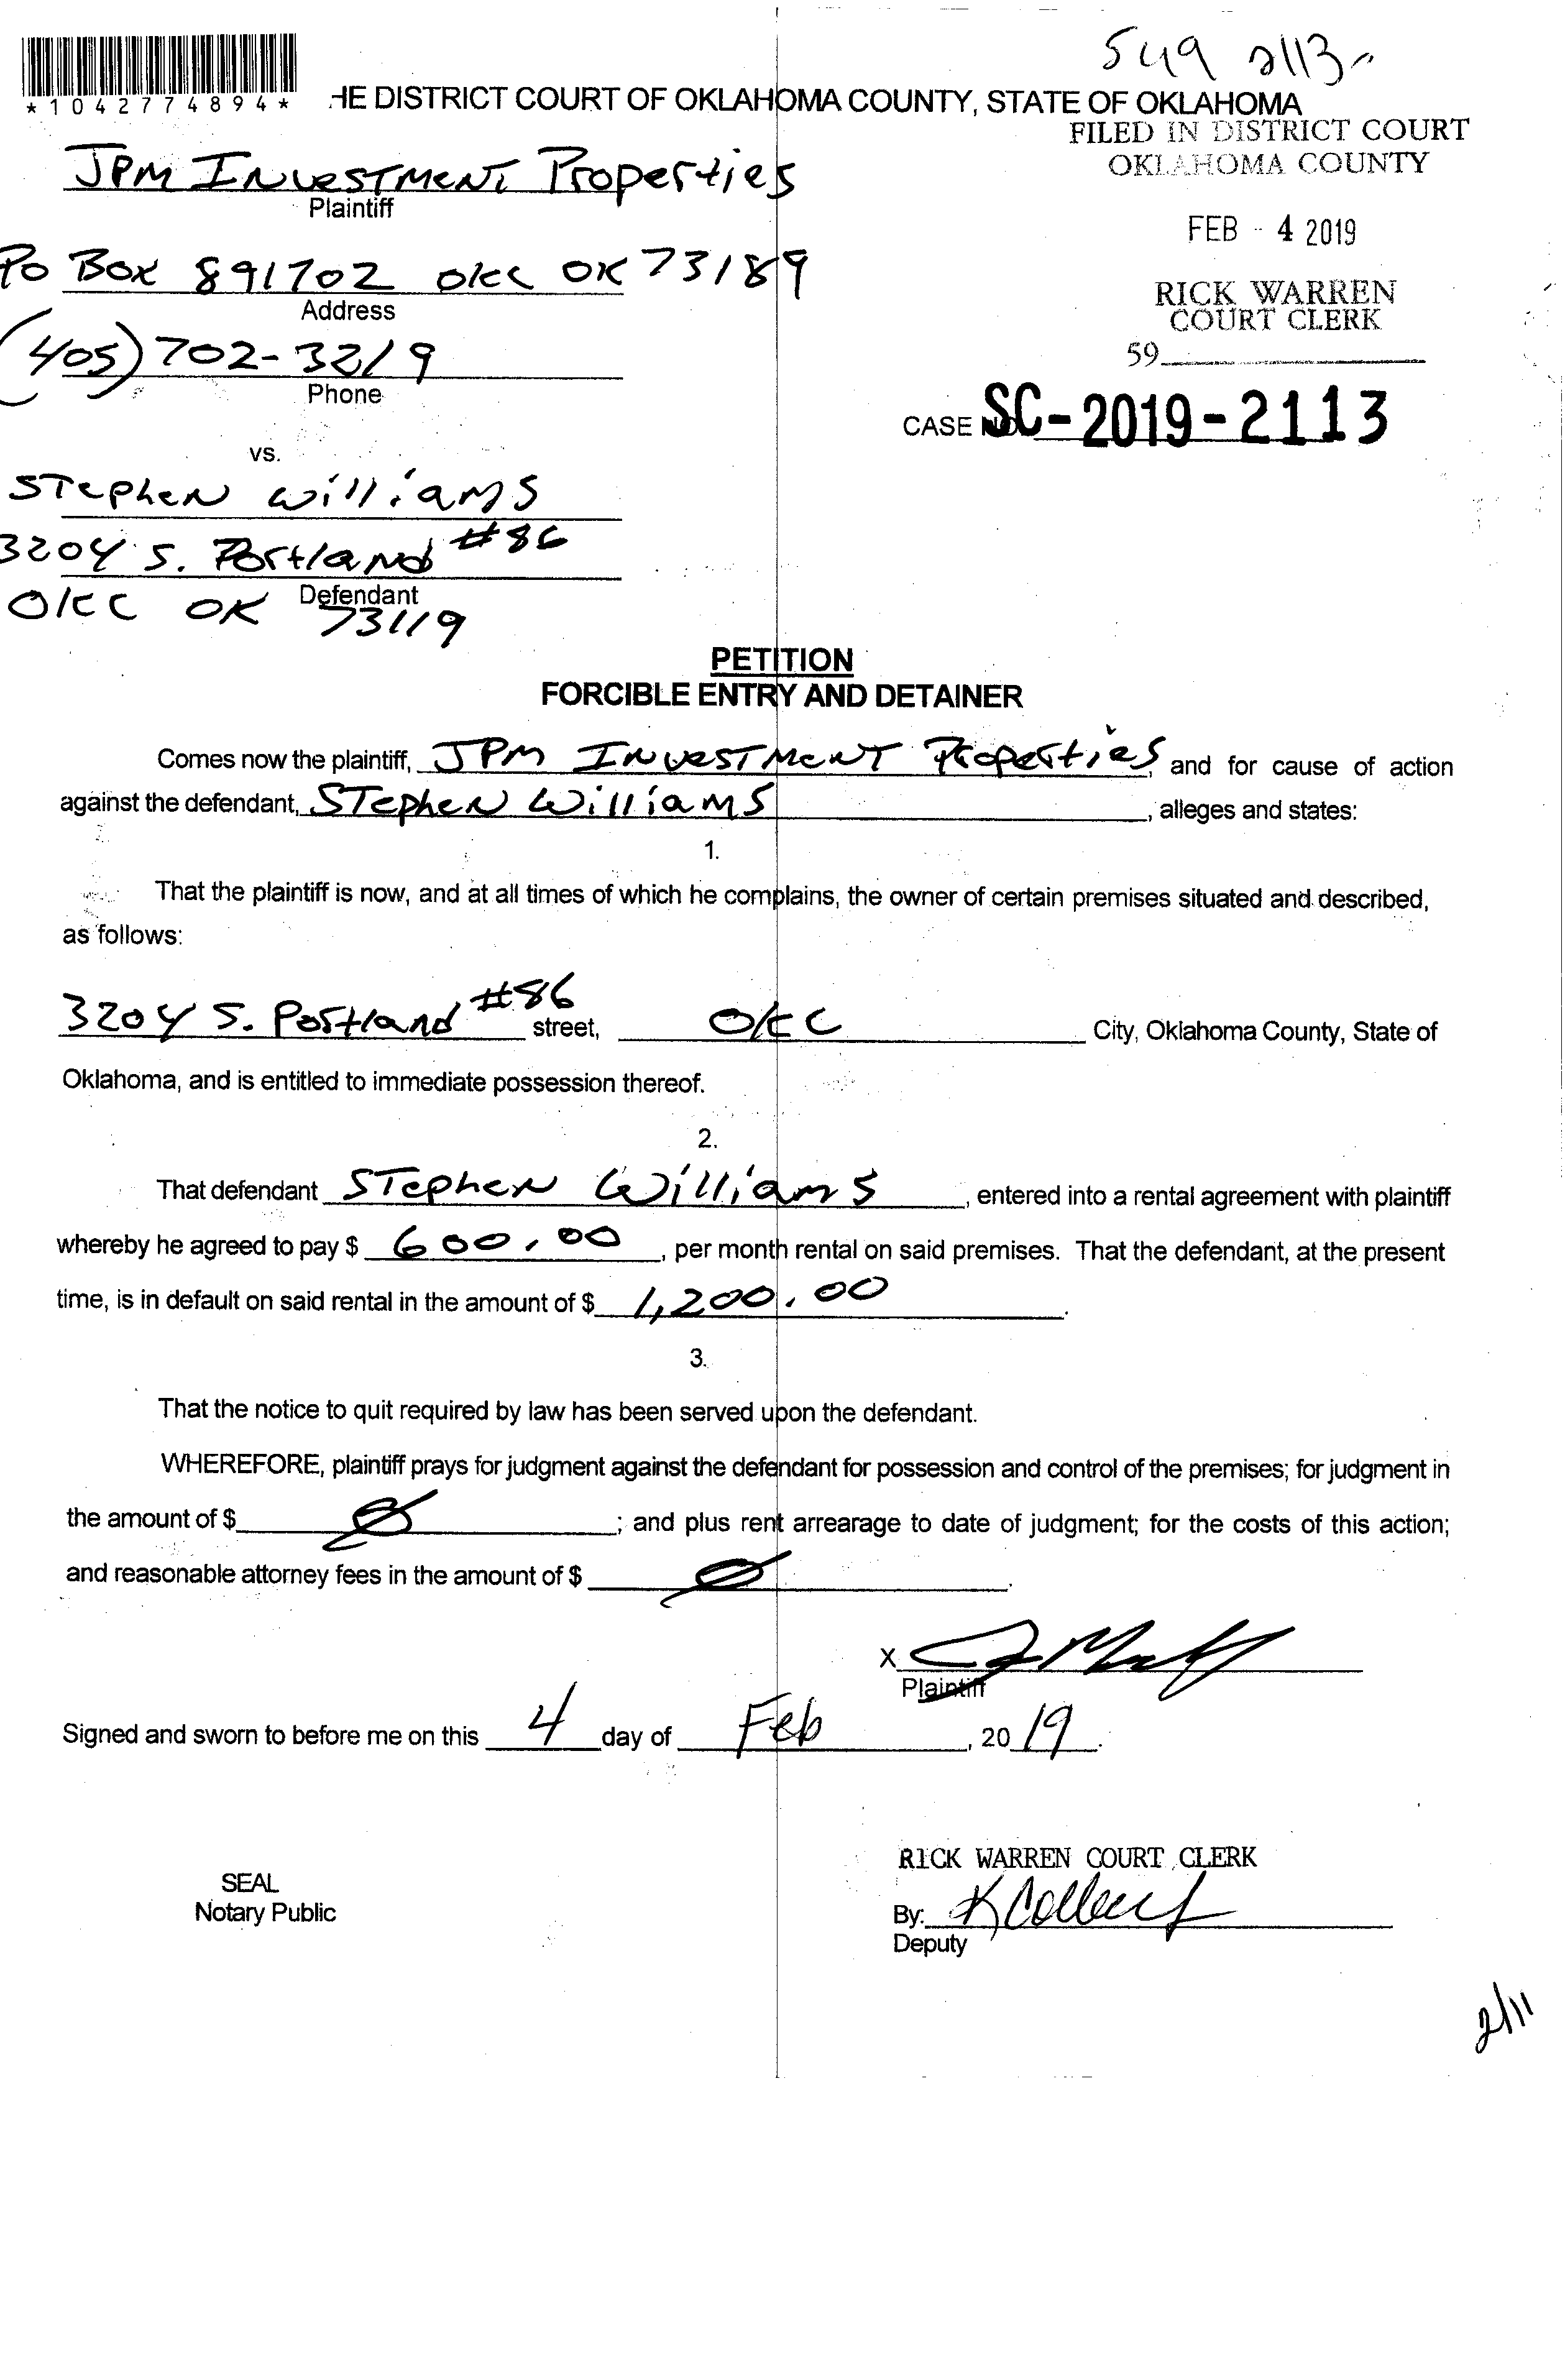 549 2113
*1042774894*
HE DISTRICT COURT OF OKLAHOMA COUNTY, STATE OF OKLAHOMA
FILED IN DISTRICT COURT
OKLAHOMA COUNTY
JPM Investment Properties
Plaintiff
FEB - 4 2019
PO Box 891702 OKC OK 73189
Address
RICK WARREN
COURT CLERK
59
(405) 702-3219
Phone
CASE NO. SC-2019-2113
vs.
Stephen Williams
3204 S. Portland #86
Defendant
OKC OK 73119
PETITION
FORCIBLE ENTRY AND DETAINER
Comes now the plaintiff, JPM Investment Properties, and for cause of action
against the defendant, Stephen Williams, alleges and states:
1.
That the plaintiff is now, and at all times of which he complains, the owner of certain premises situated and described,
as follows:
3204 S. Portland #86 street, OKC City, Oklahoma County, State of
Oklahoma, and is entitled to immediate possession thereof.
2.
That defendant Stephen Williams, entered into a rental agreement with plaintiff
whereby he agreed to pay $ 600.00, per month rental on said premises. That the defendant, at the present
time, is in default on said rental in the amount of $ 1,200.00.
3.
That the notice to quit required by law has been served upon the defendant.
WHEREFORE, plaintiff prays for judgment against the defendant for possession and control of the premises; for judgment in
the amount of $ Ø; and plus rent arrearage to date of judgment; for the costs of this action;
and reasonable attorney fees in the amount of $ Ø.
X
Plaintiff
Signed and sworn to before me on this 4 day of Feb, 2019.
RICK WARREN COURT CLERK
SEAL
Notary Public
By:
Deputy
2/11